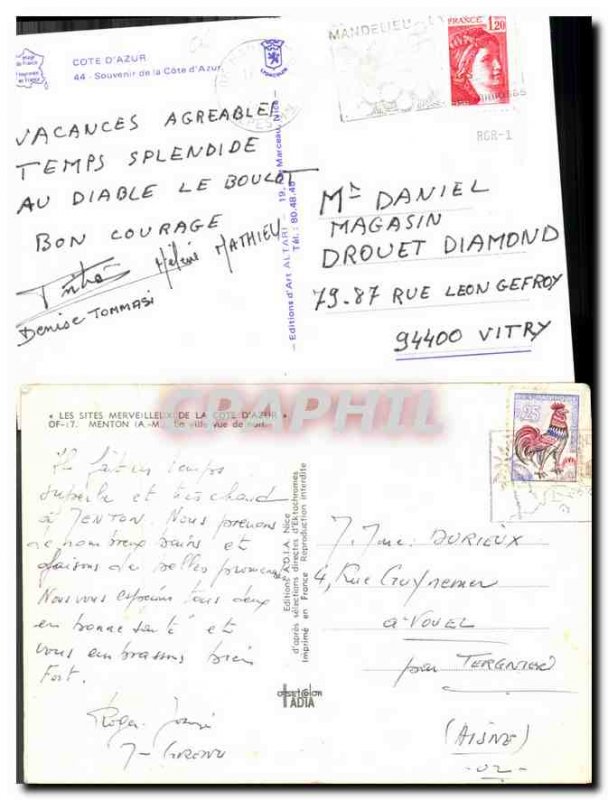 COTE D'AZUR
44 - Souvenir de la Côte d'Azur
VACANCES AGREABLE
TEMPS SPLENDIDE
AU DIABLE LE BOULOT
BON COURAGE
Hélène MATHIEU
Denise TOMMASI
Editions d'Art ALTARI - 19, Marceau, Nice -
Tél.: 80.48.46
MANDELIEU
FRANCE
1,20
RGR-1
Mr DANIEL
MAGASIN
DROUET DIAMOND
79-87 RUE LEON GEFROY
94400 VITRY
CPAPHIL.COM
« LES SITES MERVEILLEUX DE LA COTE D'AZUR »
OF-17. MENTON (A.-M.). La ville vue de nuit.
Il fait un temps
superbe et très chaud
à MENTON. Nous prenons
de nombreux bains et
faisons de belles promenades
Nous vous espérons tous deux
en bonne santé et
vous embrassons bien
Fort.
Roger
Editions A.D.I.A. Nice
d'après sélections directes d'Ektachromes
Imprimé en France Reproduction interdite
ADIA
0,25
M. Mme DURIEUX
4, Rue Guynemer
à VOUEL
par TERGNIER
(AISNE)
-02-